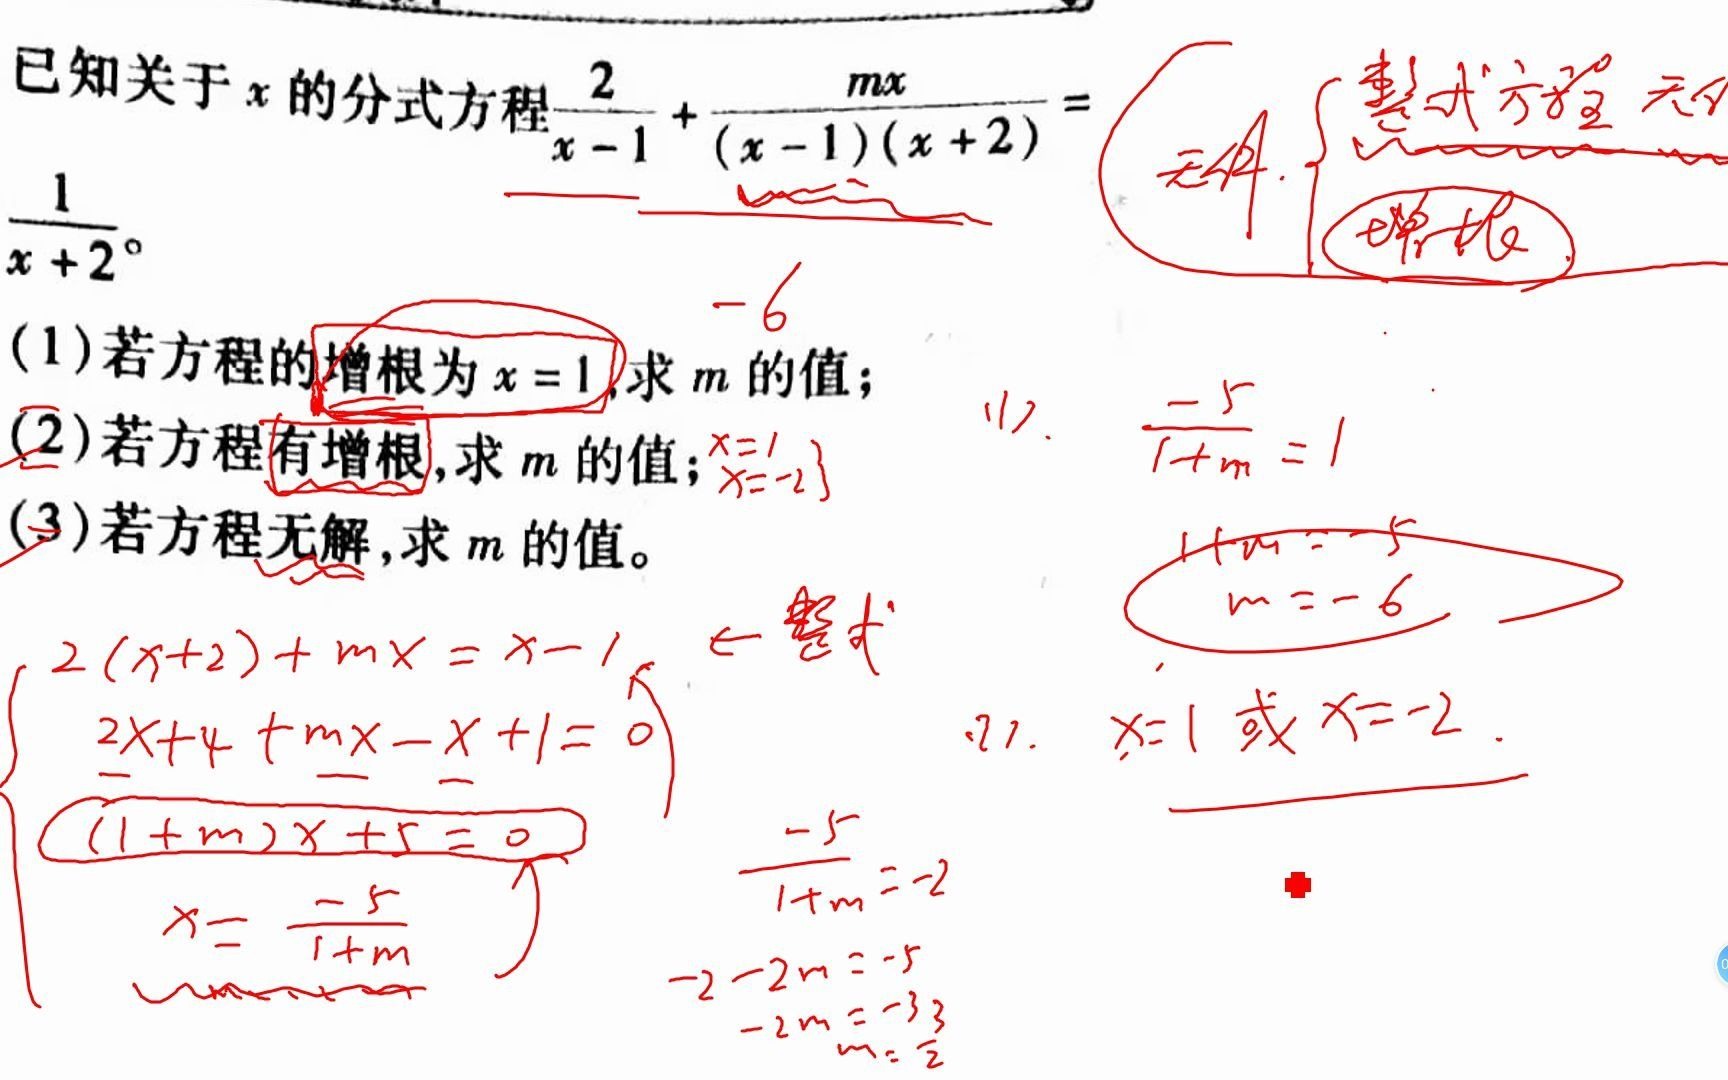 已知关于 x 的分式方程 2/(x-1) + mx/((x-1)(x+2)) =
1/(x+2)。
(1)若方程的增根为 x=1,求 m 的值;
(2)若方程有增根,求 m 的值;
(3)若方程无解,求 m 的值。
-6
x=1
x=-2}
无解. { 整式方程 无
增根
2(x+2)+mx=x-1 ← 整式
2x+4+mx-x+1=0
(1+m)x+5=0
x= -5/(1+m)
-5/(1+m) =-2
-2-2m=-5
-2m=-3
m=3/2
(1). -5/(1+m) =1
1+m=-5
m=-6
(2). x=1 或 x=-2.